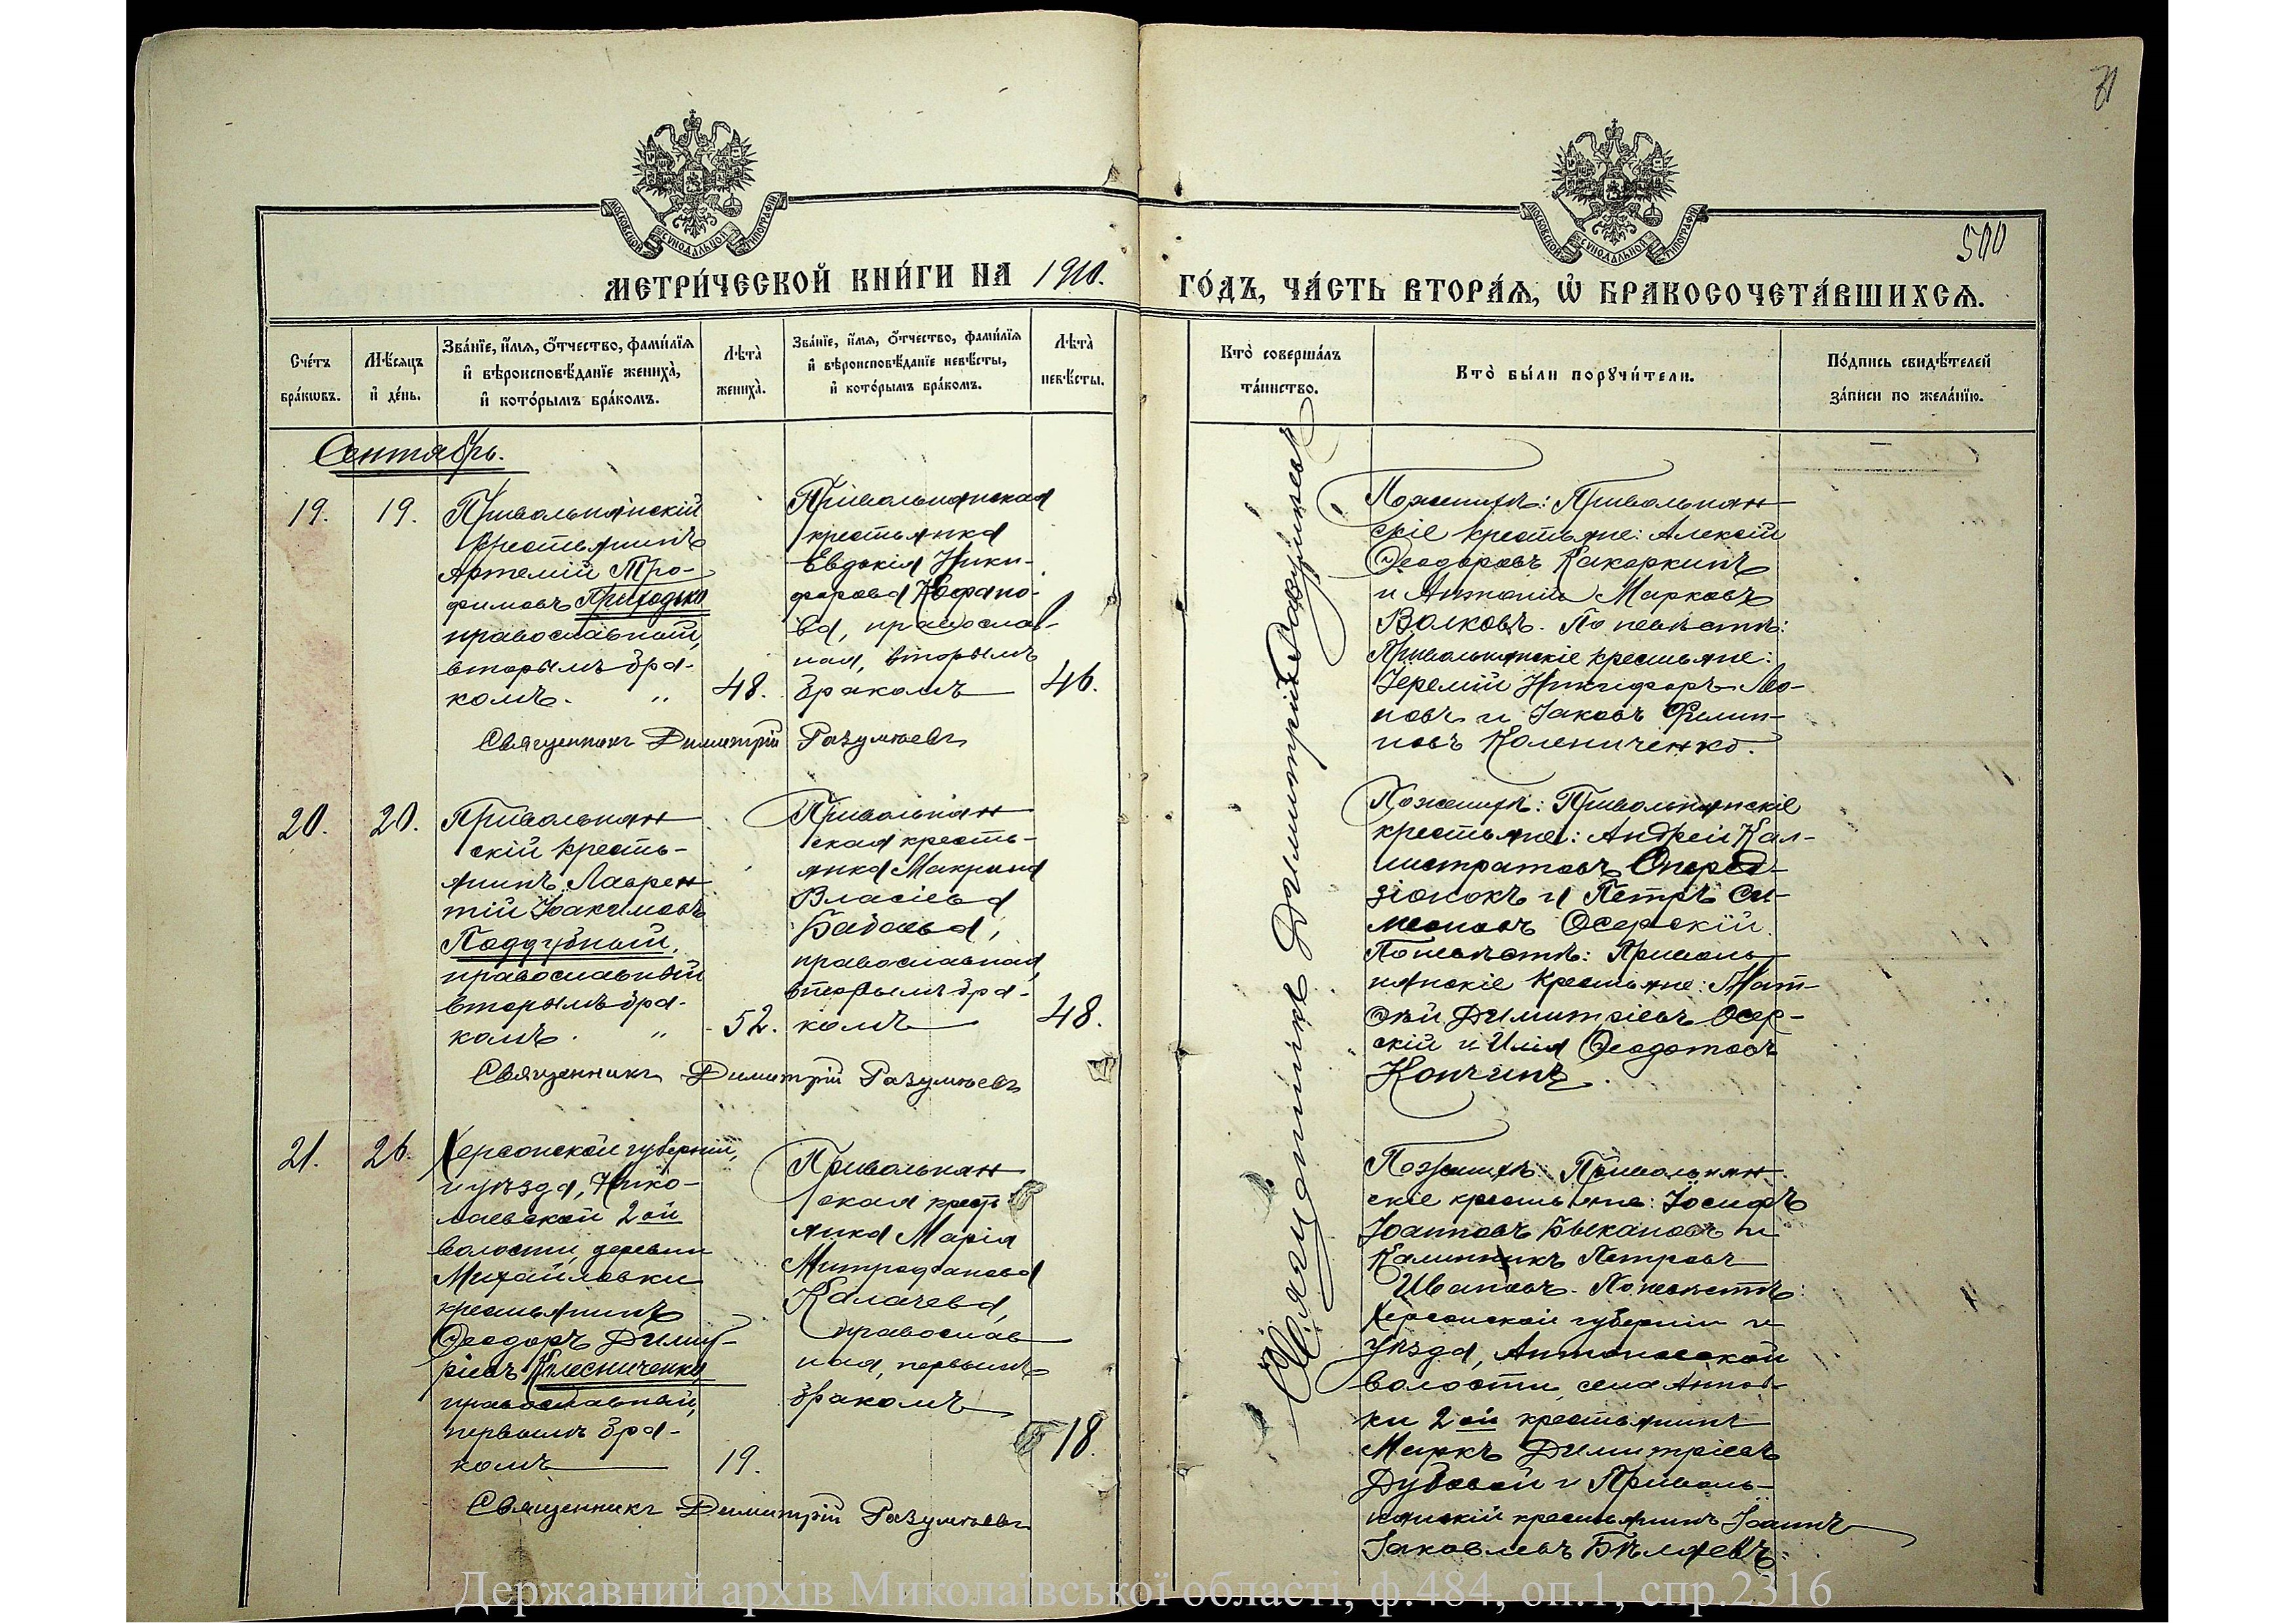 71
500
МОСКОВСКОЙ СѴНОДАЛЬНОЙ ТИПОГРАФІИ
МОСКОВСКОЙ СѴНОДАЛЬНОЙ ТИПОГРАФІИ
МЕТРИ́ЧЕСКОЙ КНИ́ГИ НА 1910.
ГО́ДЪ, ЧА́СТЬ ВТОРА́Ѧ, Ѡ҆ БРАКОСОЧЕТА́ВШИХСѦ.
Сче́тъ
бра́кѡвъ.
Мѣ́сяцъ
и҆ де́нь.
Зва́нїе, и҆́мѧ, ѻ҆́тчество, фами́лїѧ
и҆ вѣроисповѣ́данїе жениха̀,
и҆ кото́рымъ бра́комъ.
Лѣта̀
жениха̀.
Зва́нїе, и҆́мѧ, ѻ҆́тчество, фами́лїѧ
и҆ вѣроисповѣ́данїе невѣ́сты,
и҆ кото́рымъ бра́комъ.
Лѣта̀
невѣ́сты.
Кто̀ соверша́лъ
та́инство.
Кто̀ бы́ли порꙋчи́тели.
По́дпись свидѣ́телей
за́писи по жела́нїю.
Сентябрь.
19.
19.
Привольнянскій
крестьянинъ
Артемій Тро-
фимовъ Приходько
православный,
вторымъ бра-
комъ. "
48.
Привольнянская
крестьянка
Евдокія Ники-
форова
ва, православ-
ная, вторымъ
бракомъ
46.
Священникъ Димитрій Разумѣевъ
Священникъ Димитрій Разумѣевъ
По женихѣ: Привольнян
скіе крестьяне: Алексій
Ѳеодоровъ Какоркинъ
и Антоній Марковъ
Волковъ. По невѣстѣ:
Привольнянскіе крестьяне:
Іеремій Никифоровъ
новъ и Іаковъ Филип-
повъ
20.
20.
Привольнян
скій кресть-
янинъ Лаврен
тій Іоакимовъ
Поддубный,
православный
вторымъ бра-
комъ. "
52.
Привольнян
ская кресть-
янка Макрина
Власіева
Бабаева,
православная,
вторымъ бра-
комъ
48.
Священникъ Димитрій Разумѣевъ
По женихѣ: Привольнянскіе
крестьяне: Андрей Кал-
листратовъ
и Петръ Си-
меоновъ Осерскій.
По невѣстѣ: Приволь
нянскіе крестьяне: Мат-
ѳей Димитріевъ Осер-
скій и Илія Ѳеодотовъ
Кончинъ.
21.
26.
Херсонской губерніи,
и уѣзда, Нико-
лаевской 2ой
волости, деревни
Михайловки
крестьянинъ
Ѳеодоръ Димит-
ріевъ Колесниченко,
православный,
первымъ бра-
комъ
19.
Привольнян
ская крест
янка Марія
Митрофанова
Калачева,
православ
ная, первымъ
бракомъ
18.
Священникъ Димитрій Разумѣевъ
По женихѣ: Привольнян
скіе крестьяне: Іосифъ
Іоанновъ Быкановъ и
Каллиникъ Петровъ
Ивановъ. По невѣстѣ:
Херсонской губерніи и
уѣзда, Антоновской
волости, села Аннов-
ки 2ой крестьянинъ
Маркъ Димитріевъ
Дубовой и Приволь-
нянскій крестьянинъ Іоаннъ
Іаковлевъ Бѣляевъ.
Державний архів Миколаївської області, ф.484, оп.1, спр.2316